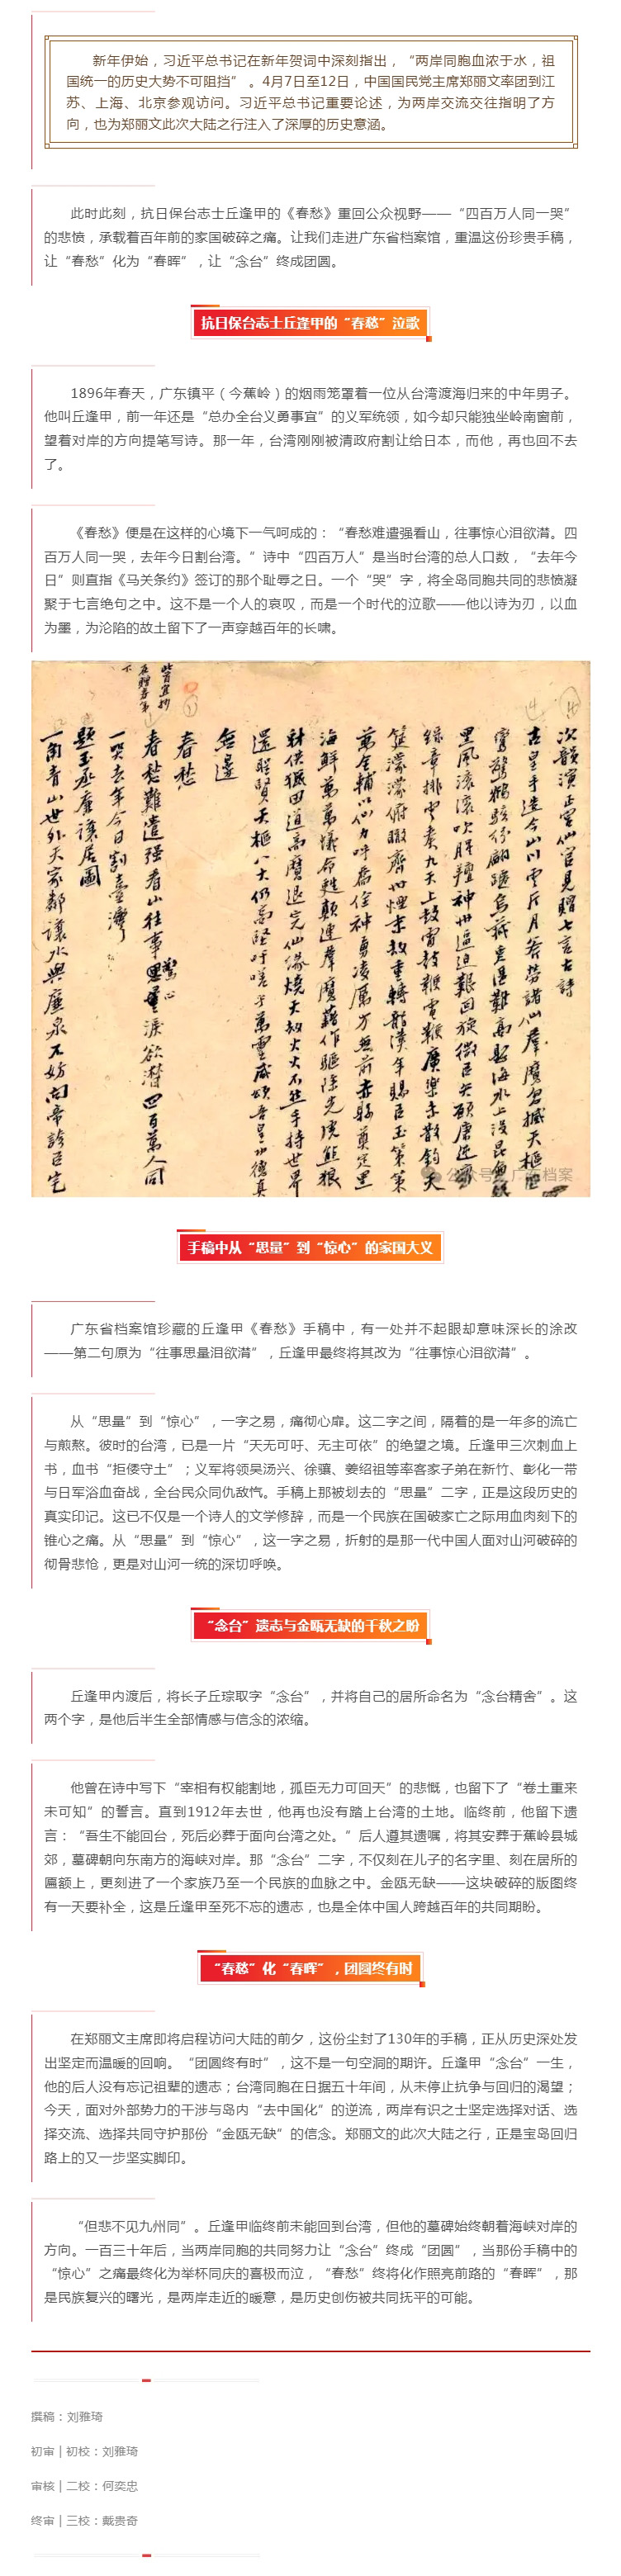 新年伊始，习近平总书记在新年贺词中深刻指出，“两岸同胞血浓于水，祖
国统一的历史大势不可阻挡” 。4月7日至12日，中国国民党主席郑丽文率团到江
苏、上海、北京参观访问。习近平总书记重要论述，为两岸交流交往指明了方
向，也为郑丽文此次大陆之行注入了深厚的历史意涵。
此时此刻，抗日保台志士丘逢甲的《春愁》重回公众视野——“四百万人同一哭”
的悲愤，承载着百年前的家国破碎之痛。让我们走进广东省档案馆，重温这份珍贵手稿，
让“春愁”化为“春晖”，让“念台”终成团圆。
抗日保台志士丘逢甲的“春愁”泣歌
1896年春天，广东镇平（今蕉岭）的烟雨笼罩着一位从台湾渡海归来的中年男子。
他叫丘逢甲，前一年还是“总办全台义勇事宜”的义军统领，如今却只能独坐岭南窗前，
望着对岸的方向提笔写诗。那一年，台湾刚刚被清政府割让给日本，而他，再也回不去
了。
《春愁》便是在这样的心境下一气呵成的：“春愁难遣强看山，往事惊心泪欲潸。四
百万人同一哭，去年今日割台湾。”诗中“四百万人”是当时台湾的总人口数，“去年今
日”则直指《马关条约》签订的那个耻辱之日。一个“哭”字，将全岛同胞共同的悲愤凝
聚于七言绝句之中。这不是一个人的哀叹，而是一个时代的泣歌——他以诗为刃，以血
为墨，为沦陷的故土留下了一声穿越百年的长啸。
次韵演正堂仙官見贈七言古詩
春愁
春愁難遣强看山往事思量驚心淚欲潸四百萬人同
一哭去年今日割臺灣
題玉丞廉讓居圖
一角青山世外天家鄰讓水與廉泉
公众号 广东档案
手稿中从“思量”到“惊心”的家国大义
广东省档案馆珍藏的丘逢甲《春愁》手稿中，有一处并不起眼却意味深长的涂改
——第二句原为“往事思量泪欲潸”，丘逢甲最终将其改为“往事惊心泪欲潸”。
从“思量”到“惊心”，一字之易，痛彻心扉。这二字之间，隔着的是一年多的流亡
与煎熬。彼时的台湾，已是一片“天无可吁、无主可依”的绝望之境。丘逢甲三次刺血上
书，血书“拒倭守土”；义军将领吴汤兴、徐骧、姜绍祖等率客家子弟在新竹、彰化一带
与日军浴血奋战，全台民众同仇敌忾。手稿上那被划去的“思量”二字，正是这段历史的
真实印记。这已不仅是一个诗人的文学修辞，而是一个民族在国破家亡之际用血肉刻下的
锥心之痛。从“思量”到“惊心”，这一字之易，折射的是那一代中国人面对山河破碎的
彻骨悲怆，更是对山河一统的深切呼唤。
“念台”遗志与金瓯无缺的千秋之盼
丘逢甲内渡后，将长子丘琮取字“念台”，并将自己的居所命名为“念台精舍”。这
两个字，是他后半生全部情感与信念的浓缩。
他曾在诗中写下“宰相有权能割地，孤臣无力可回天”的悲慨，也留下了“卷土重来
未可知”的誓言。直到1912年去世，他再也没有踏上台湾的土地。临终前，他留下遗
言：“吾生不能回台，死后必葬于面向台湾之处。”后人遵其遗嘱，将其安葬于蕉岭县城
郊，墓碑朝向东南方的海峡对岸。那“念台”二字，不仅刻在儿子的名字里、刻在居所的
匾额上，更刻进了一个家族乃至一个民族的血脉之中。金瓯无缺——这块破碎的版图终
有一天要补全，这是丘逢甲至死不忘的遗志，也是全体中国人跨越百年的共同期盼。
“春愁”化“春晖”，团圆终有时
在郑丽文主席即将启程访问大陆的前夕，这份尘封了130年的手稿，正从历史深处发
出坚定而温暖的回响。“团圆终有时”，这不是一句空洞的期许。丘逢甲“念台”一生，
他的后人没有忘记祖辈的遗志；台湾同胞在日据五十年间，从未停止抗争与回归的渴望；
今天，面对外部势力的干涉与岛内“去中国化”的逆流，两岸有识之士坚定选择对话、选
择交流、选择共同守护那份“金瓯无缺”的信念。郑丽文的此次大陆之行，正是宝岛回归
路上的又一步坚实脚印。
“但悲不见九州同”。丘逢甲临终前未能回到台湾，但他的墓碑始终朝着海峡对岸的
方向。一百三十年后，当两岸同胞的共同努力让“念台”终成“团圆”，当那份手稿中的
“惊心”之痛最终化为举杯同庆的喜极而泣，“春愁”终将化作照亮前路的“春晖”，那
是民族复兴的曙光，是两岸走近的暖意，是历史创伤被共同抚平的可能。
撰稿：刘雅琦
初审 | 初校：刘雅琦
审核 | 二校：何奕忠
终审 | 三校：戴贵奇